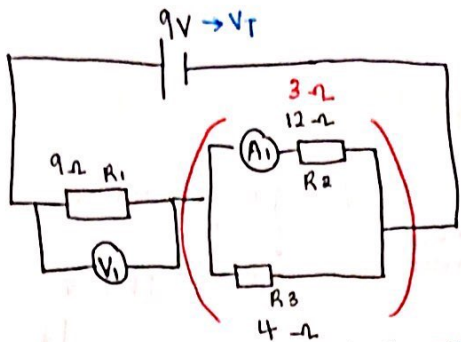 9V → VT
3 Ω
12 Ω
A1
R2
9Ω R1
V1
R3
4 Ω